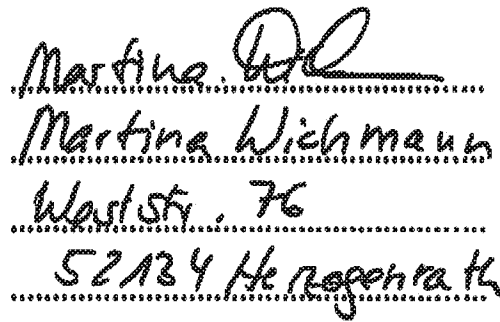 Martina
Martina Wichmann
76
52134 Herzogenrath